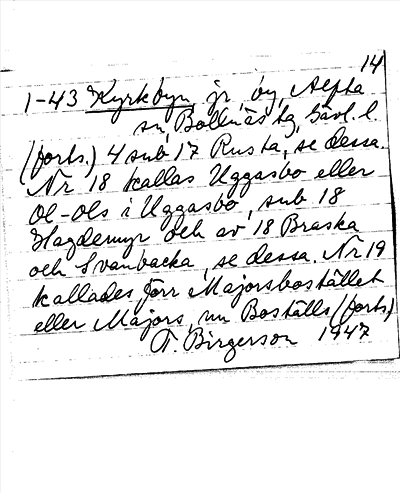 14
1-43 Kyrkbyn, jr, by, Alfta
sn, Bollnäs tg, Gävl. l.
(forts.) 4 sub 17 Rusta, se dessa.
Nr 18 kallas Uggasbo eller
Ol-Ols i Uggasbo, sub 18
Hagdemyr och av 18 Braska
och Svanbacka, se dessa. Nr 19
kallades förr Majorsbostället
eller Majors, nu Boställs/(forts.)
T. Birgerson 1947